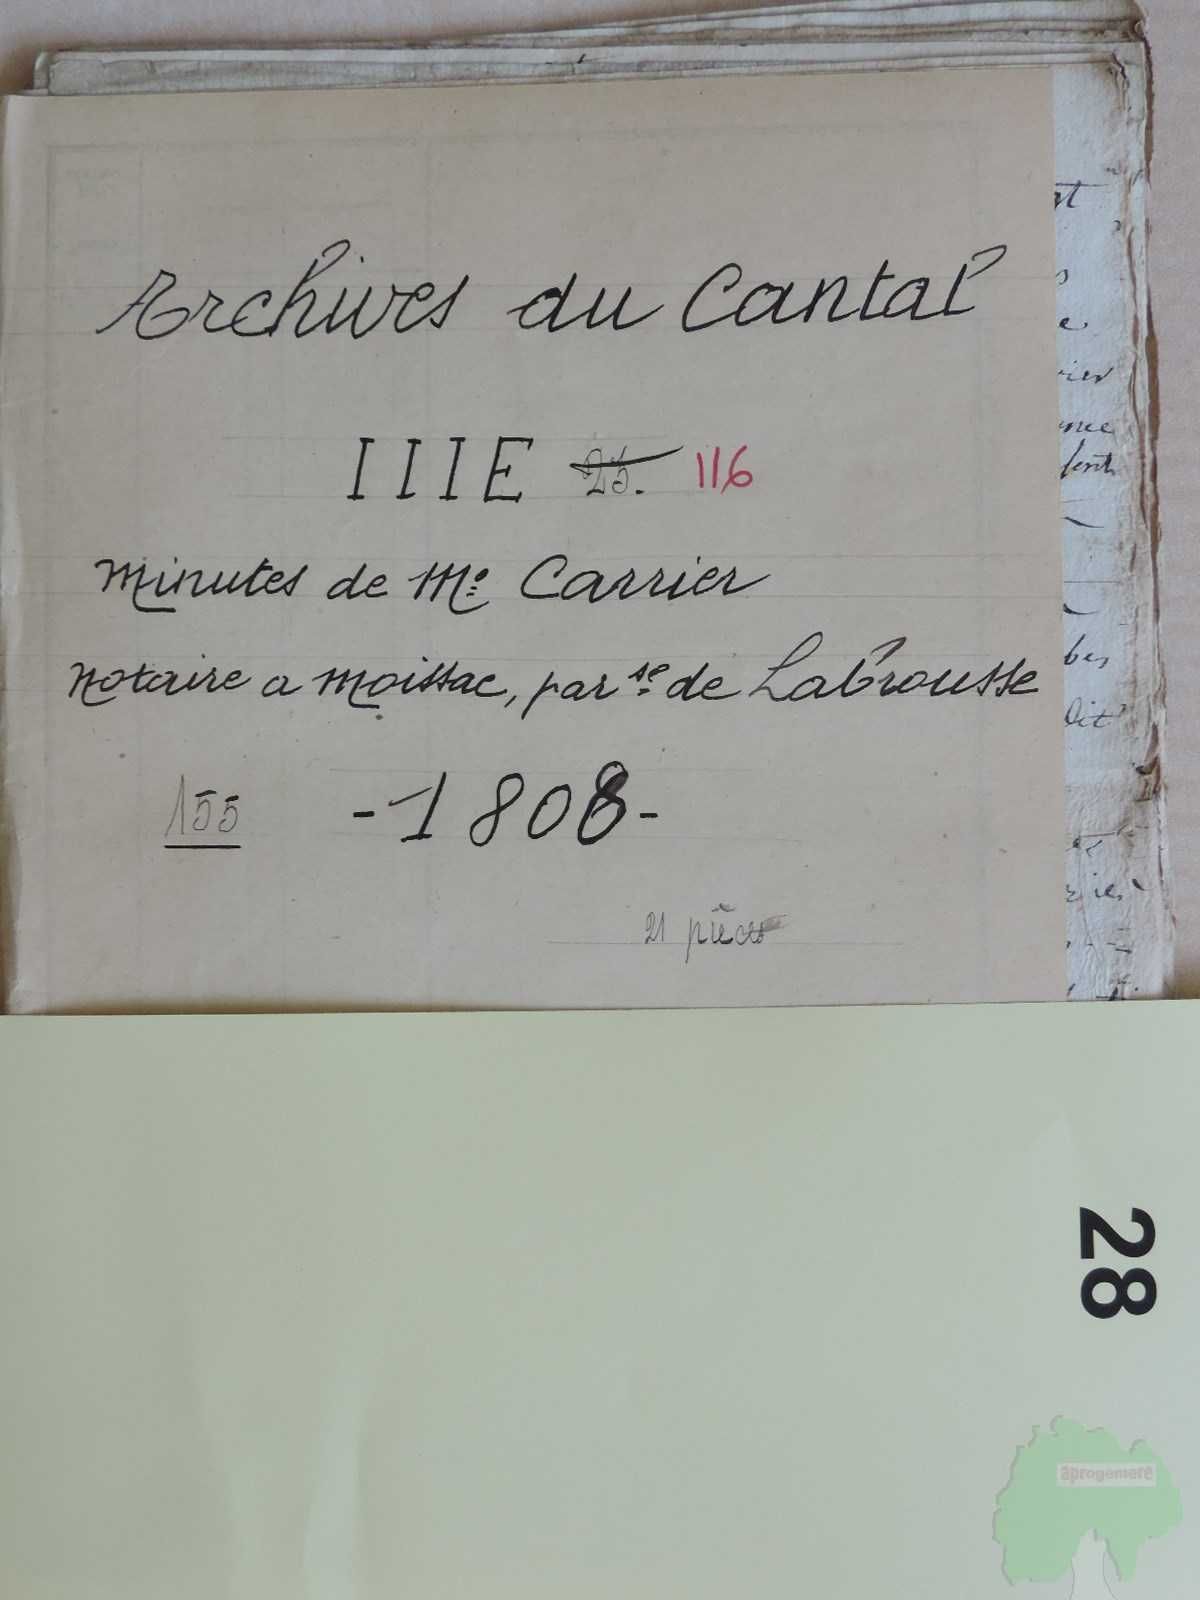 Archives du Cantal
IIIE 25. 116
Minutes de Me. Carrier
Notaire a Moissac, par.se de Labrousse
155 -1808-
21 pièces
28
aprogemere